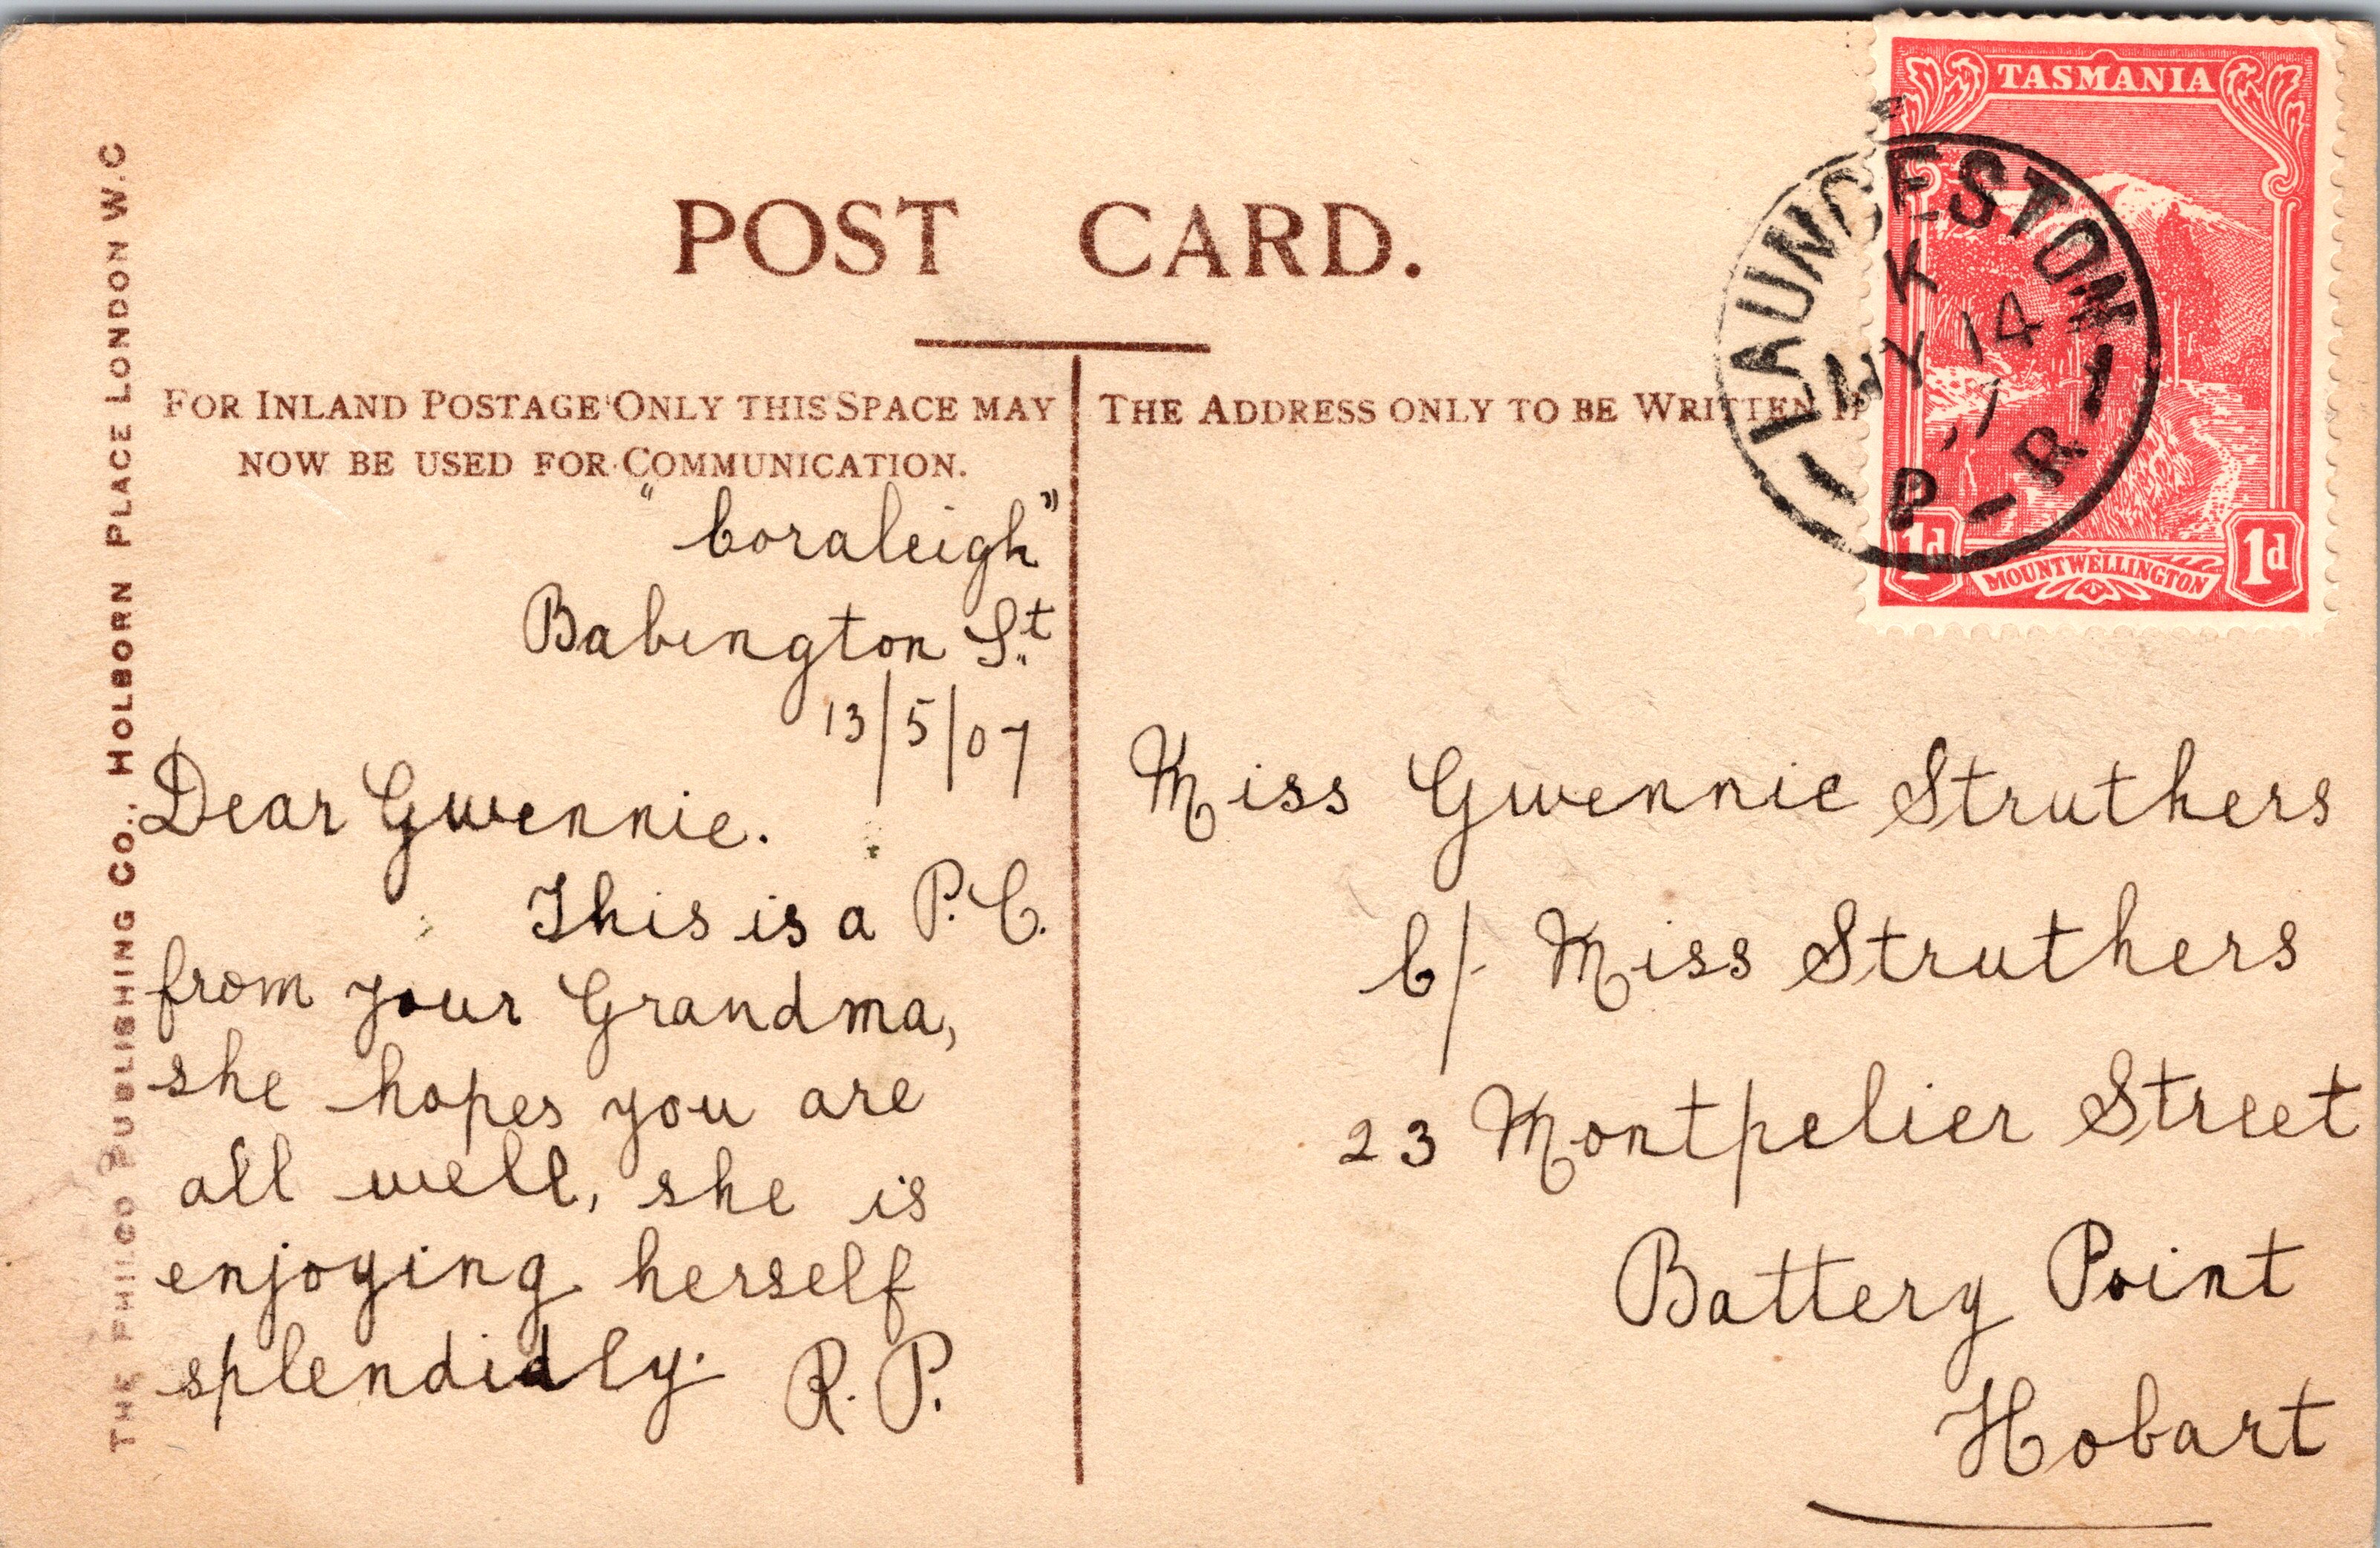 POST CARD.
FOR INLAND POSTAGE ONLY THIS SPACE MAY
NOW BE USED FOR COMMUNICATION.
"Coraleigh"
Babington St
13/5/07
Dear Gwennie.
This is a P.C.
from your Grandma,
she hopes you are
all well, she is
enjoying herself
splendidly. R.P.
THE ADDRESS ONLY TO BE WRITTEN
Miss Gwennie Struthers
C/- Miss Struthers
23 Montpelier Street
Battery Point
Hobart
TASMANIA
1d MOUNT WELLINGTON 1d
LAUNCESTON
K
MY 14
P-R
THE PHILCO PUBLISHING CO., HOLBORN PLACE LONDON W.C